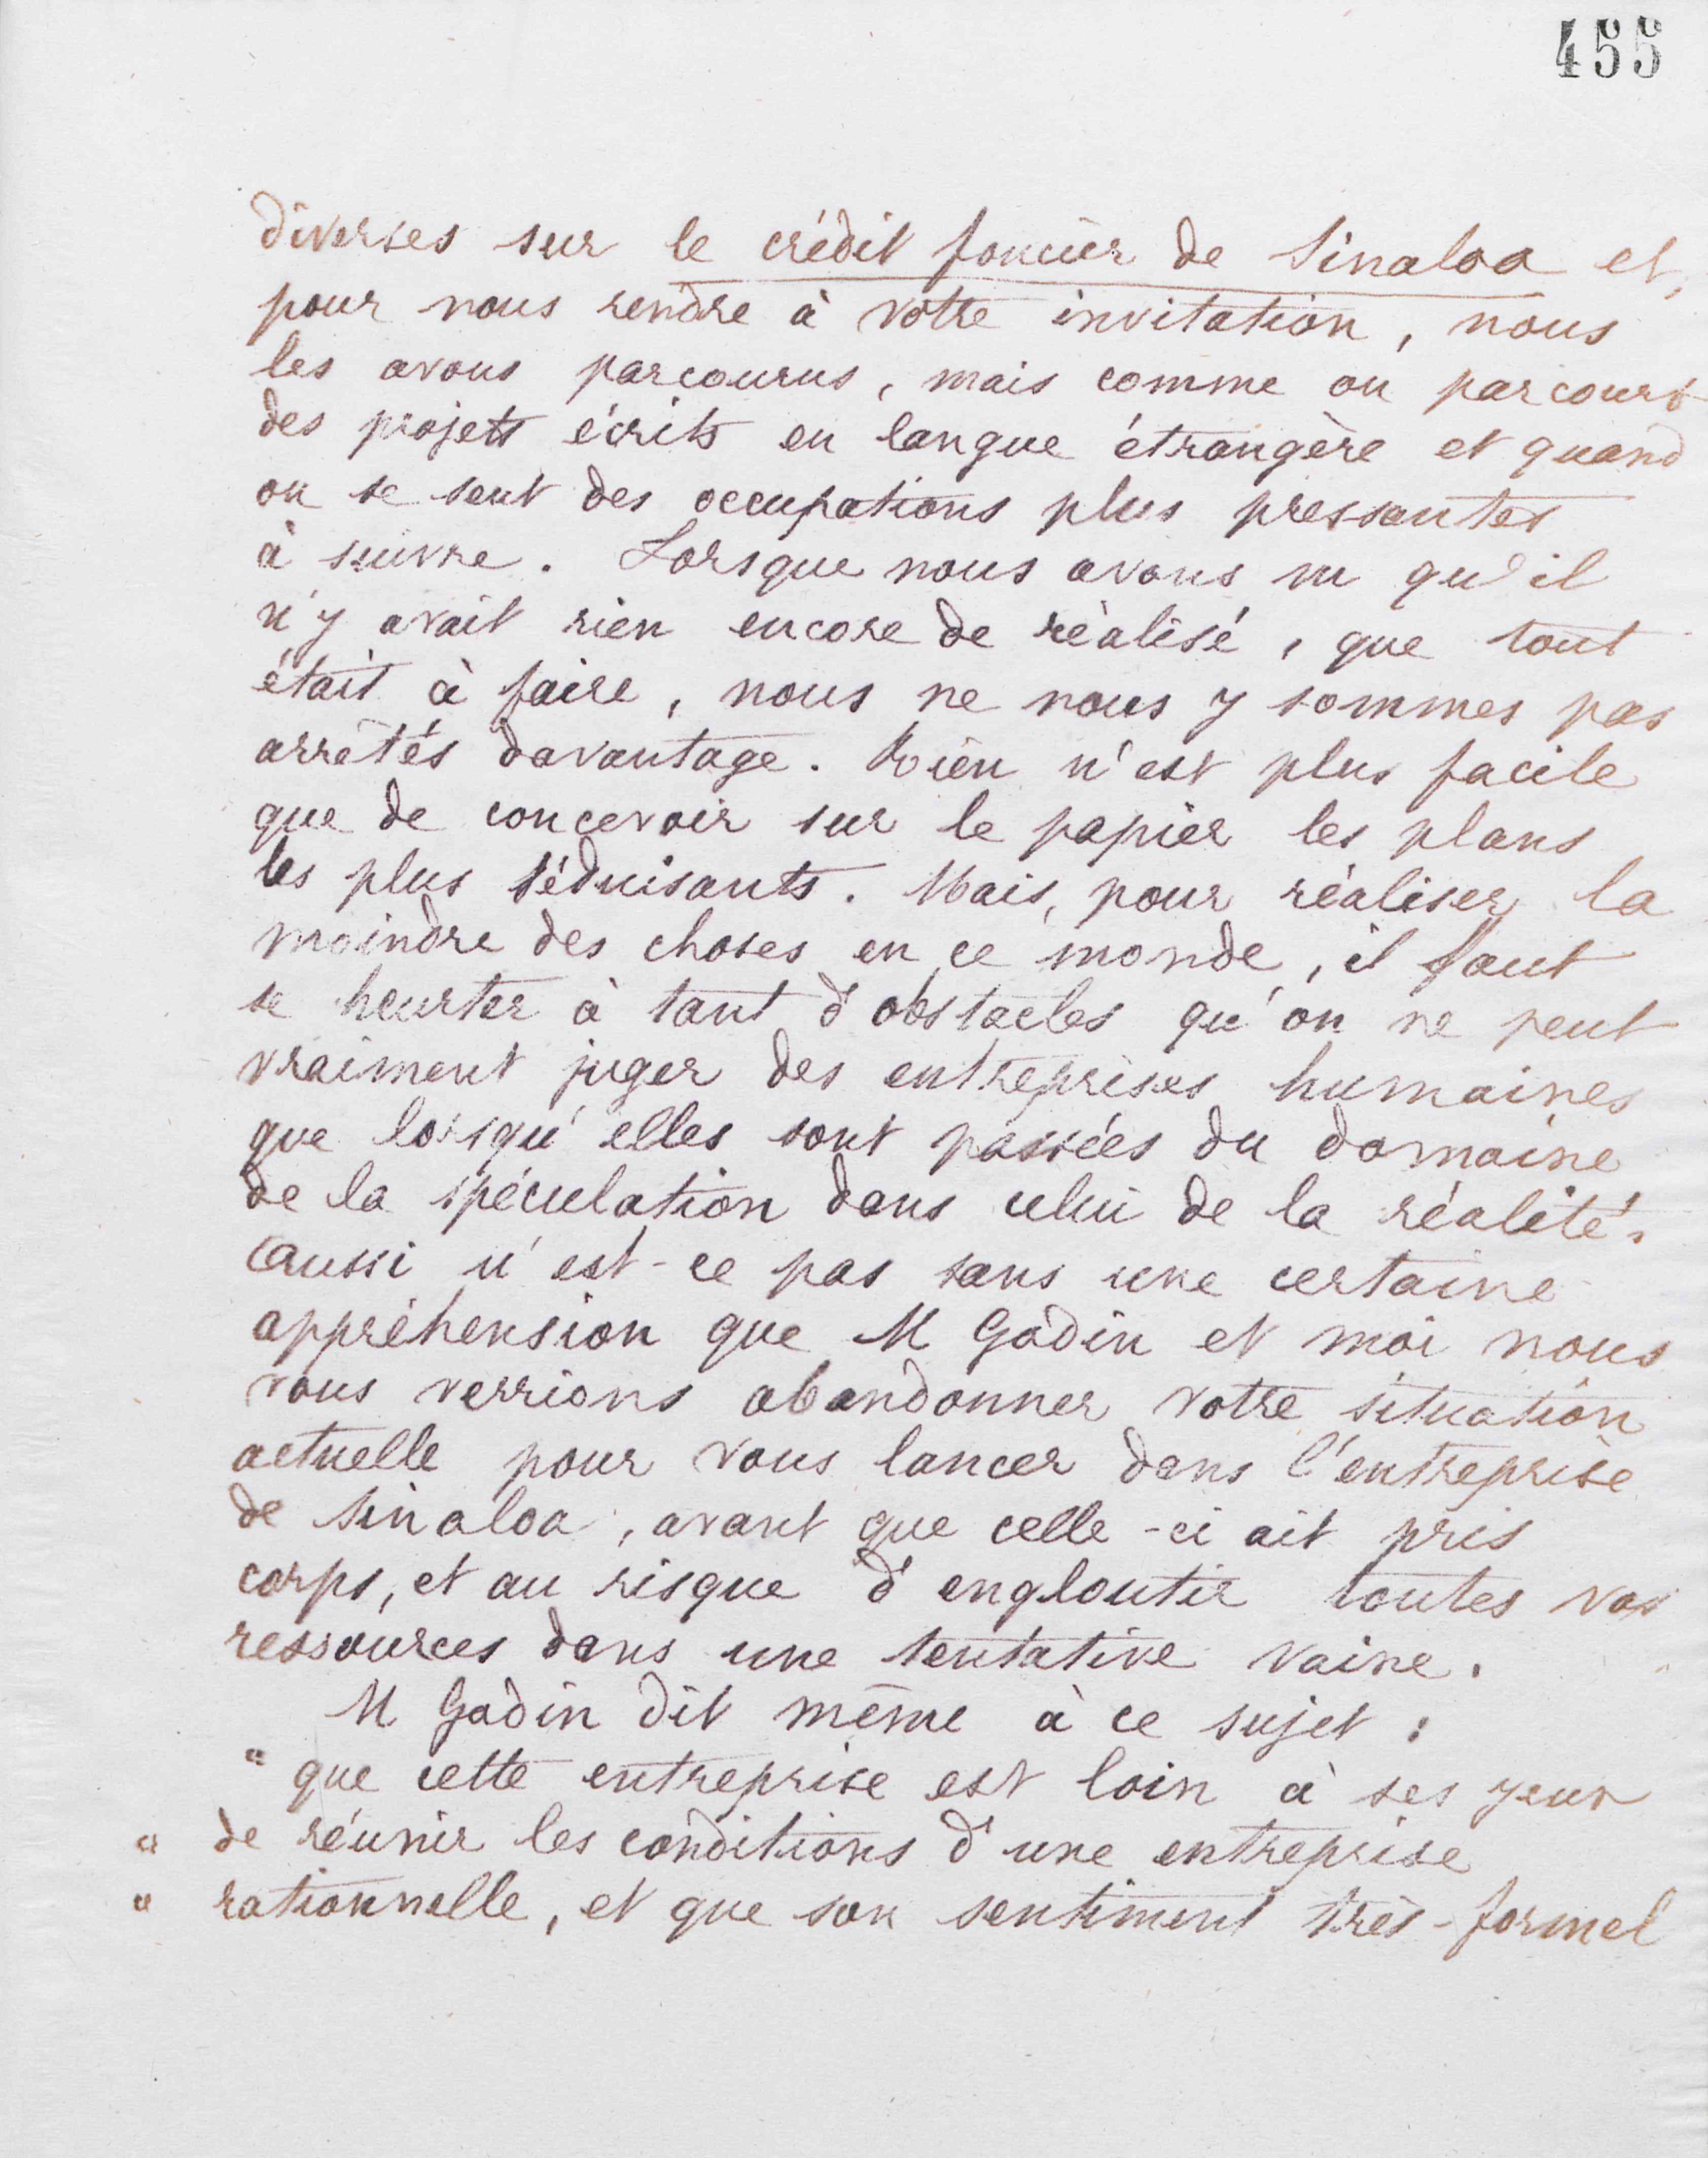 455
diverses sur le crédit foncier de Sinaloa et,
pour nous rendre à votre invitation, nous
les avons parcourus, mais comme on parcourt
des projets écrits en langue étrangère et quand
on se sent des occupations plus pressantes
à suivre. Lorsque nous avons vu qu'il
n'y avait rien encore de réalisé, que tout
était à faire, nous ne nous y sommes pas
arrêtés davantage. Rien n'est plus facile
que de concevoir sur le papier les plans
les plus séduisants. Mais, pour réaliser la
moindre des choses en ce monde, il faut
se heurter à tant d'obstacles qu'on ne peut
vraiment juger des entreprises humaines
que lorsqu'elles sont passées du domaine
de la spéculation dans celui de la réalité.
Aussi n'est-ce pas sans une certaine
appréhension que M Godin et moi nous
vous verrions abandonner votre situation
actuelle pour vous lancer dans l'entreprise
de Sinaloa, avant que celle-ci ait pris
corps, et au risque d'engloutir toutes vos
ressources dans une tentative vaine.
M Godin dit même à ce sujet :
" que cette entreprise est loin à ses yeux
" de réunir les conditions d'une entreprise
" rationnelle, et que son sentiment très-formel